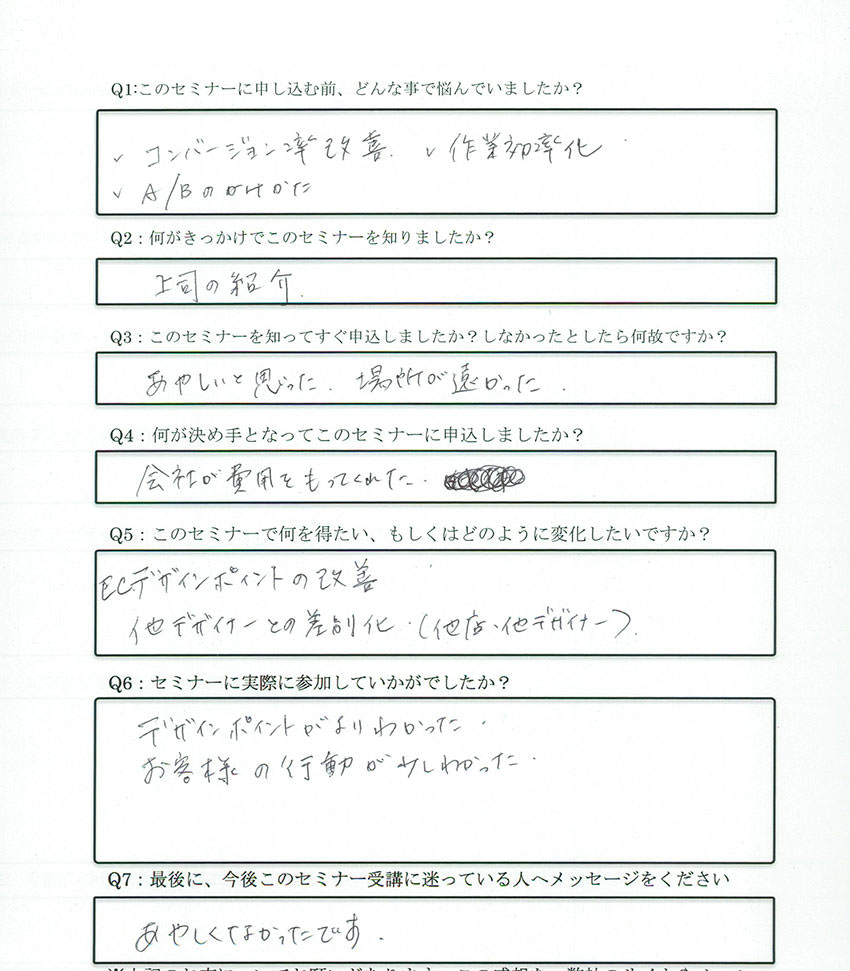 Q1:このセミナーに申し込む前、どんな事で悩んでいましたか?
✓ コンバージョン率改善. ✓ 作業効率化
✓ A/Bのかけかた
Q2:何がきっかけでこのセミナーを知りましたか?
上司の紹介.
Q3:このセミナーを知ってすぐ申込しましたか?しなかったとしたら何故ですか?
あやしいと思った. 場所が遠かった.
Q4:何が決め手となってこのセミナーに申込しましたか?
会社が費用をもってくれた.
Q5:このセミナーで何を得たい、もしくはどのように変化したいですか?
ECデザインポイントの改善
他デザイナーとの差別化.(他店、他デザイナー).
Q6:セミナーに実際に参加していかがでしたか?
デザインポイントがよりわかった.
お客様の行動が少しわかった.
Q7:最後に、今後このセミナー受講に迷っている人へメッセージをください
あやしくなかったです.